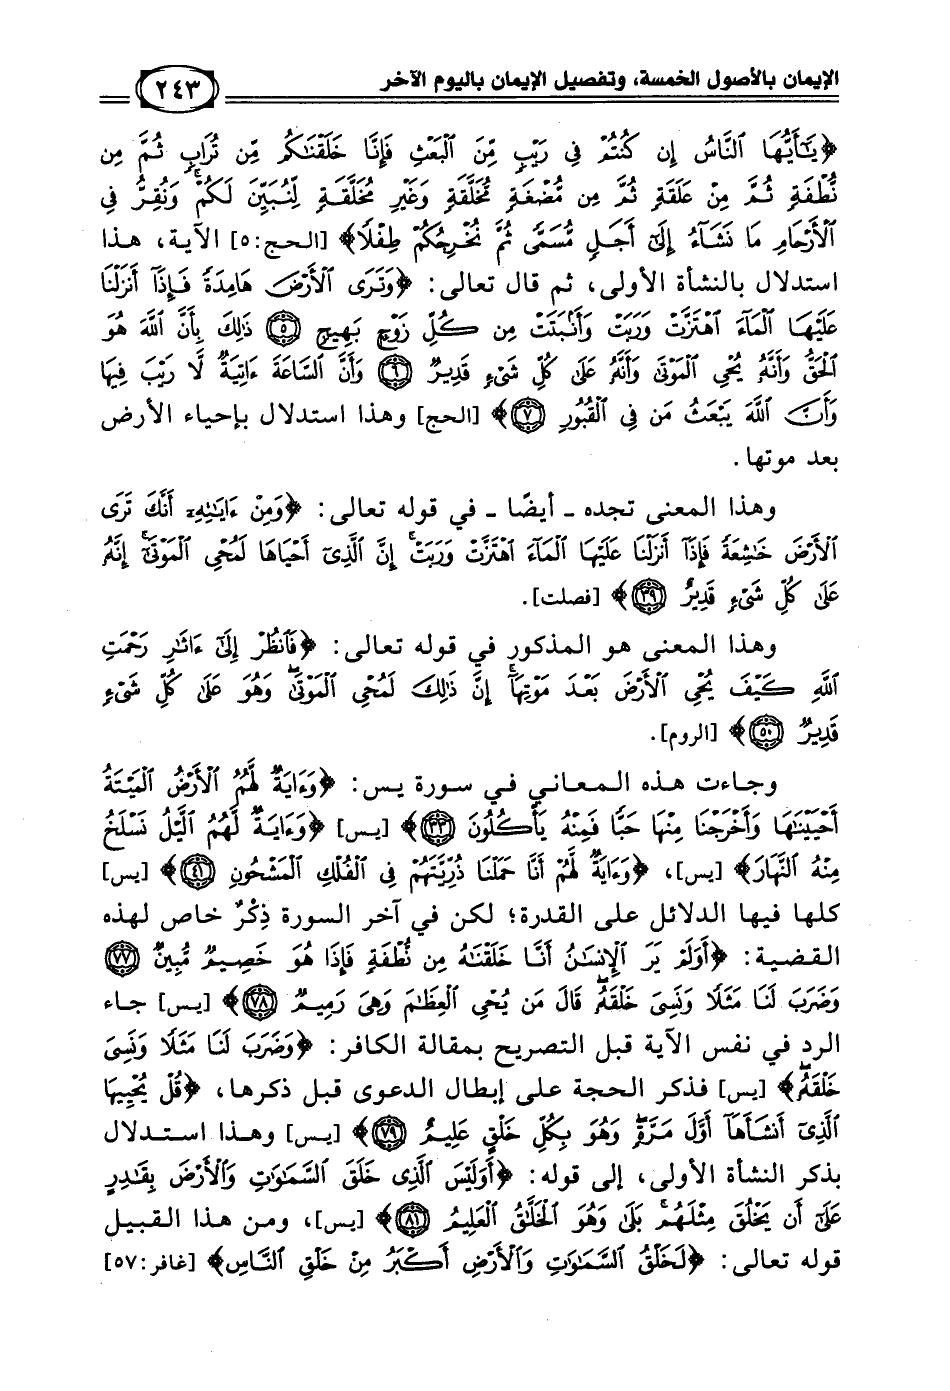 الإيمان بالأصول الخمسة، وتفصيل الإيمان باليوم الآخر ٢٤٣
﴿يَٰٓأَيُّهَا ٱلنَّاسُ إِن كُنتُمْ فِي رَيْبٍ مِّنَ ٱلْبَعْثِ فَإِنَّا خَلَقْنَٰكُم مِّن تُرَابٍ ثُمَّ مِن
نُّطْفَةٍ ثُمَّ مِنْ عَلَقَةٍ ثُمَّ مِن مُّضْغَةٍ مُّخَلَّقَةٍ وَغَيْرِ مُخَلَّقَةٍ لِّنُبَيِّنَ لَكُمْ ۚ وَنُقِرُّ فِي
ٱلْأَرْحَامِ مَا نَشَآءُ إِلَىٰٓ أَجَلٍ مُّسَمًّى ثُمَّ نُخْرِجُكُمْ طِفْلًا﴾ [الحج:٥] الآية، هذا
استدلال بالنشأة الأولى، ثم قال تعالى: ﴿وَتَرَى ٱلْأَرْضَ هَامِدَةً فَإِذَآ أَنزَلْنَا
عَلَيْهَا ٱلْمَآءَ ٱهْتَزَّتْ وَرَبَتْ وَأَنۢبَتَتْ مِن كُلِّ زَوْجٍۭ بَهِيجٍ ٥ ذَٰلِكَ بِأَنَّ ٱللَّهَ هُوَ
ٱلْحَقُّ وَأَنَّهُۥ يُحْيِ ٱلْمَوْتَىٰ وَأَنَّهُۥ عَلَىٰ كُلِّ شَيْءٍ قَدِيرٌ ٦ وَأَنَّ ٱلسَّاعَةَ ءَاتِيَةٌ لَّا رَيْبَ فِيهَا
وَأَنَّ ٱللَّهَ يَبْعَثُ مَن فِي ٱلْقُبُورِ ٧﴾ [الحج] وهذا استدلال بإحياء الأرض
بعد موتها.
وهذا المعنى تجده ـ أيضًا ـ في قوله تعالى: ﴿وَمِنْ ءَايَٰتِهِۦٓ أَنَّكَ تَرَى
ٱلْأَرْضَ خَٰشِعَةً فَإِذَآ أَنزَلْنَا عَلَيْهَا ٱلْمَآءَ ٱهْتَزَّتْ وَرَبَتْ ۚ إِنَّ ٱلَّذِيٓ أَحْيَاهَا لَمُحْيِ ٱلْمَوْتَىٰٓ ۚ إِنَّهُۥ
عَلَىٰ كُلِّ شَيْءٍ قَدِيرٌ ٣٩﴾ [فصلت].
وهذا المعنى هو المذكور في قوله تعالى: ﴿فَٱنظُرْ إِلَىٰٓ ءَاثَٰرِ رَحْمَتِ
ٱللَّهِ كَيْفَ يُحْيِ ٱلْأَرْضَ بَعْدَ مَوْتِهَآ ۚ إِنَّ ذَٰلِكَ لَمُحْيِ ٱلْمَوْتَىٰ ۖ وَهُوَ عَلَىٰ كُلِّ شَيْءٍ
قَدِيرٌ ٥٠﴾ [الروم].
وجاءت هذه المعاني في سورة يس: ﴿وَءَايَةٌ لَّهُمُ ٱلْأَرْضُ ٱلْمَيْتَةُ
أَحْيَيْنَٰهَا وَأَخْرَجْنَا مِنْهَا حَبًّا فَمِنْهُ يَأْكُلُونَ ٣٣﴾ [يس] ﴿وَءَايَةٌ لَّهُمُ ٱلَّيْلُ نَسْلَخُ
مِنْهُ ٱلنَّهَارَ﴾ [يس]، ﴿وَءَايَةٌ لَّهُمْ أَنَّا حَمَلْنَا ذُرِّيَّتَهُمْ فِي ٱلْفُلْكِ ٱلْمَشْحُونِ ٤١﴾ [يس]
كلها فيها الدلائل على القدرة؛ لكن في آخر السورة ذِكْرٌ خاص لهذه
القضية: ﴿أَوَلَمْ يَرَ ٱلْإِنسَٰنُ أَنَّا خَلَقْنَٰهُ مِن نُّطْفَةٍ فَإِذَا هُوَ خَصِيمٌ مُّبِينٌ ٧٧
وَضَرَبَ لَنَا مَثَلًا وَنَسِيَ خَلْقَهُۥ ۖ قَالَ مَن يُحْيِ ٱلْعِظَٰمَ وَهِيَ رَمِيمٌ ٧٨﴾ [يس] جاء
الرد في نفس الآية قبل التصريح بمقالة الكافر: ﴿وَضَرَبَ لَنَا مَثَلًا وَنَسِيَ
خَلْقَهُۥ ۖ﴾ [يس] فذكر الحجة على إبطال الدعوى قبل ذكرها، ﴿قُلْ يُحْيِيهَا
ٱلَّذِيٓ أَنشَأَهَآ أَوَّلَ مَرَّةٍ ۖ وَهُوَ بِكُلِّ خَلْقٍ عَلِيمٌ ٧٩﴾ [يس] وهذا استدلال
بذكر النشأة الأولى، إلى قوله: ﴿أَوَلَيْسَ ٱلَّذِي خَلَقَ ٱلسَّمَٰوَٰتِ وَٱلْأَرْضَ بِقَٰدِرٍ
عَلَىٰٓ أَن يَخْلُقَ مِثْلَهُم ۚ بَلَىٰ وَهُوَ ٱلْخَلَّٰقُ ٱلْعَلِيمُ ٨١﴾ [يس]، ومن هذا القبيل
قوله تعالى: ﴿لَخَلْقُ ٱلسَّمَٰوَٰتِ وَٱلْأَرْضِ أَكْبَرُ مِنْ خَلْقِ ٱلنَّاسِ﴾ [غافر:٥٧]